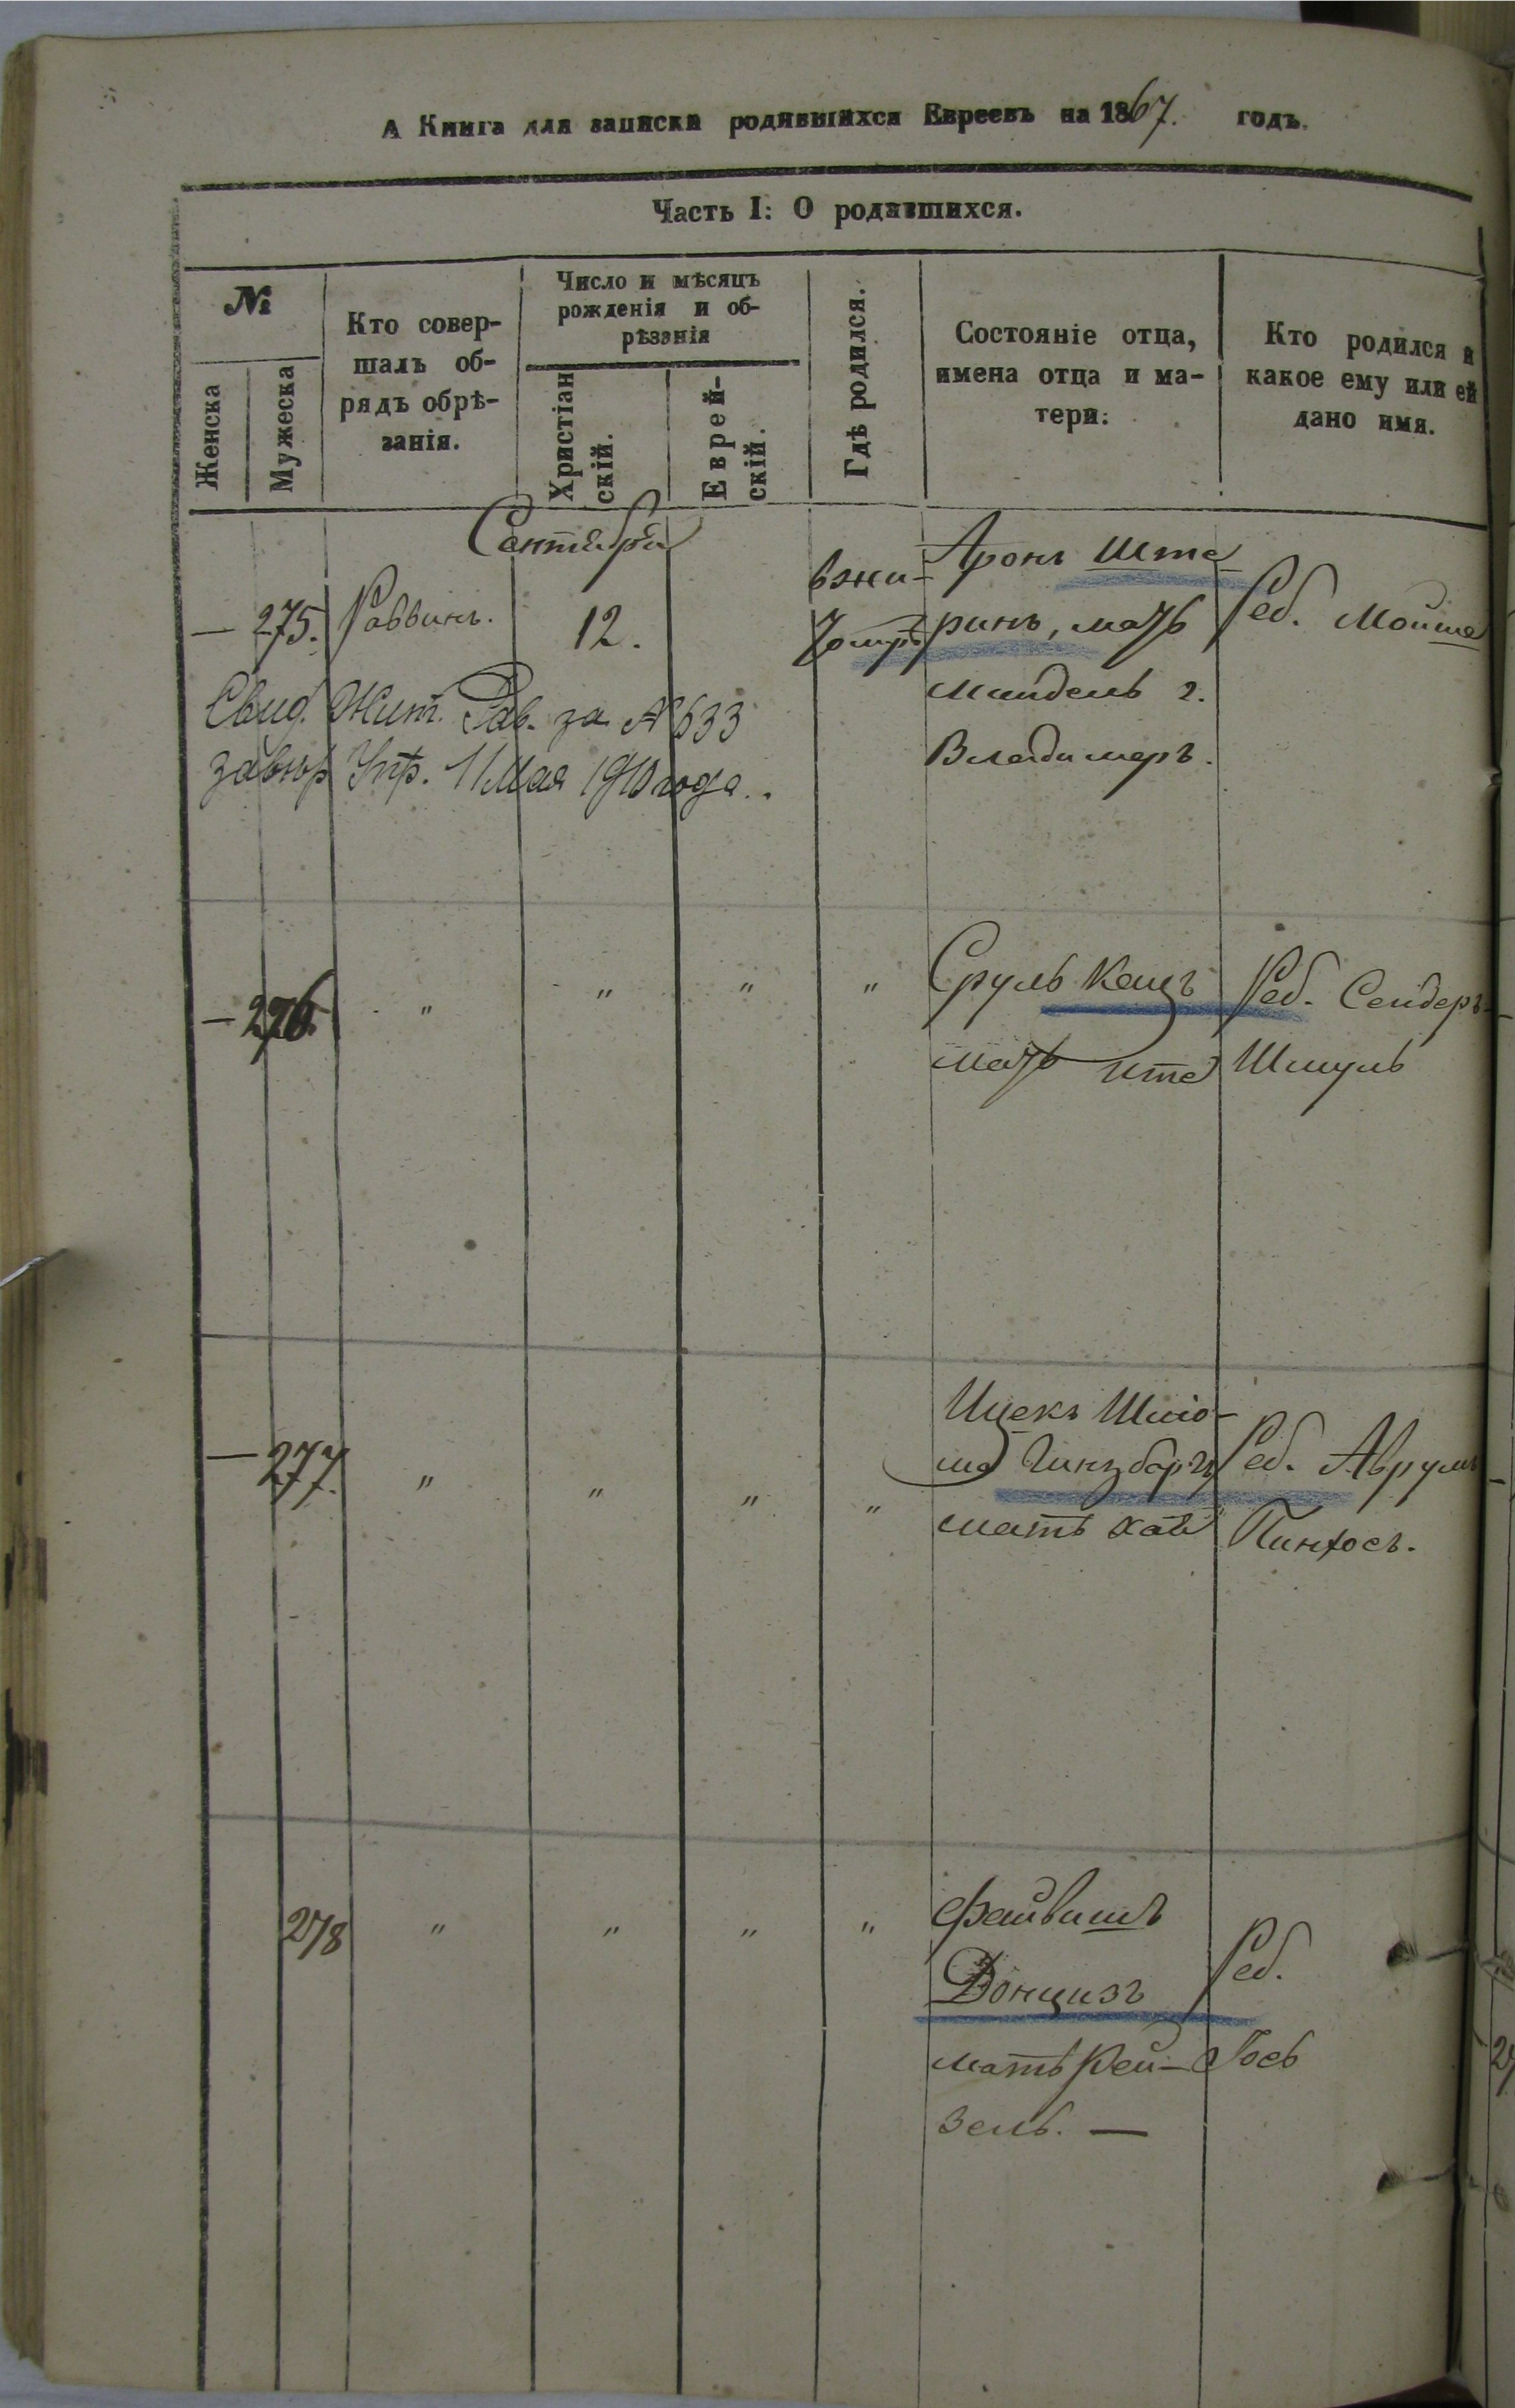 А Книга для записки родившихся Евреевъ на 1867. годъ.
Часть I: О родившихся.
№
Женска
Мужеска
Кто совер-
шалъ об-
рядъ обрѣ-
занія.
Число и мѣсяцъ
рожденія и об-
рѣзанія
Христіан
скій.
Еврей-
скій.
Гдѣ родился.
Состояніе отца,
имена отца и ма-
тери:
Кто родился и
какое ему или ей
дано имя.
Сентября
— 275.
Раввинъ.
12.
вжи-
томірѣ
Аронъ Ште
ринъ, мать
Миндель г.
Владимеръ.
Реб. Мойше
Свид. Жит. Рав. за № 633
Упр. 11 Мая 1910 года.
— 276.
"
"
"
"
Сруль Кацъ
мать Ите
Реб. Сендеръ-
Шмуль
— 277.
"
"
"
"
Ицекъ Шліо-
ма Гинзбаргъ
мать Хая
Реб. Аврумъ-
Пинхосъ.
278
"
"
"
"
Файвишъ
Донцизъ
мать Рей-
зель. —
Реб.
Іось